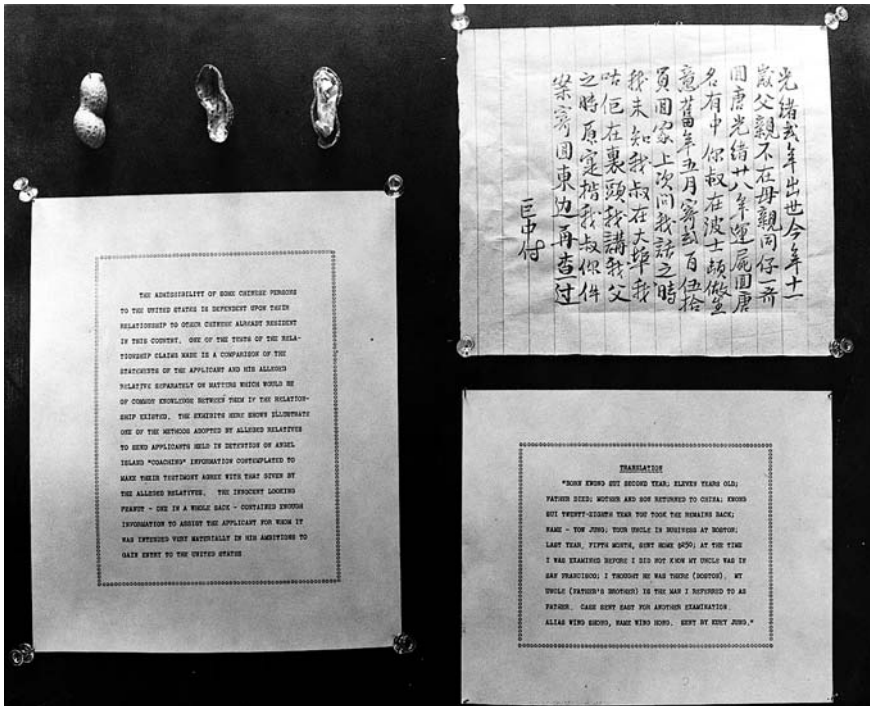 THE ADMISSIBILITY OF SOME CHINESE PERSONS
TO THE UNITED STATES IS DEPENDENT UPON THEIR
RELATIONSHIP TO OTHER CHINESE ALREADY RESIDENT
IN THIS COUNTRY. ONE OF THE TESTS OF THE RELA-
TIONSHIP CLAIMS MADE IS A COMPARISON OF THE
STATEMENTS OF THE APPLICANT AND HIS ALLEGED
RELATIVE SEPARATELY ON MATTERS WHICH WOULD BE
OF COMMON KNOWLEDGE BETWEEN THEM IF THE RELATION-
SHIP EXISTED. THE EXHIBITS HERE SHOWN ILLUSTRATE
ONE OF THE METHODS ADOPTED BY ALLEGED RELATIVES
TO SEND APPLICANTS HELD IN DETENTION ON ANGEL
ISLAND "COACHING" INFORMATION CONTEMPLATED TO
MAKE THEIR TESTIMONY AGREE WITH THAT GIVEN BY
THE ALLEGED RELATIVES. THE INNOCENT LOOKING
PEANUT - ONE IN A WHOLE SACK - CONTAINED ENOUGH
INFORMATION TO ASSIST THE APPLICANT FOR WHOM IT
WAS INTENDED VERY MATERIALLY IN HIS AMBITIONS TO
GAIN ENTRY TO THE UNITED STATES
光緒弍年出世今年十一
歲父親不在母親同仔一齊
回唐光緒廿八年運屍回唐
名有中你叔在波士頓做生
意舊年五月寄弍百伍拾
員回家上次問我話之時
我未知我叔在大埠我
咕佢在裏頭我講我父
之時原寔指我叔你件
案寄回東边再查过
巨中付
TRANSLATION
"BORN KWONG SUI SECOND YEAR; ELEVEN YEARS OLD;
FATHER DIED; MOTHER AND SON RETURNED TO CHINA; KWONG
SUI TWENTY-EIGHTH YEAR YOU TOOK THE REMAINS BACK;
NAME - YOW JUNG; YOUR UNCLE IS BUSINESS AT BOSTON;
LAST YEAR, FIFTH MONTH, SENT HOME $250; AT THE TIME
I WAS EXAMINED BEFORE I DID NOT KNOW MY UNCLE WAS IN
SAN FRANCISCO; I THOUGHT HE WAS THERE (BOSTON). MY
UNCLE (FATHER'S BROTHER) IS THE MAN I REFERRED TO AS
FATHER. CASE SENT EAST FOR ANOTHER EXAMINATION.
ALIAS WING SHONG, NAME WING HONG. SENT BY KUEY JUNG."